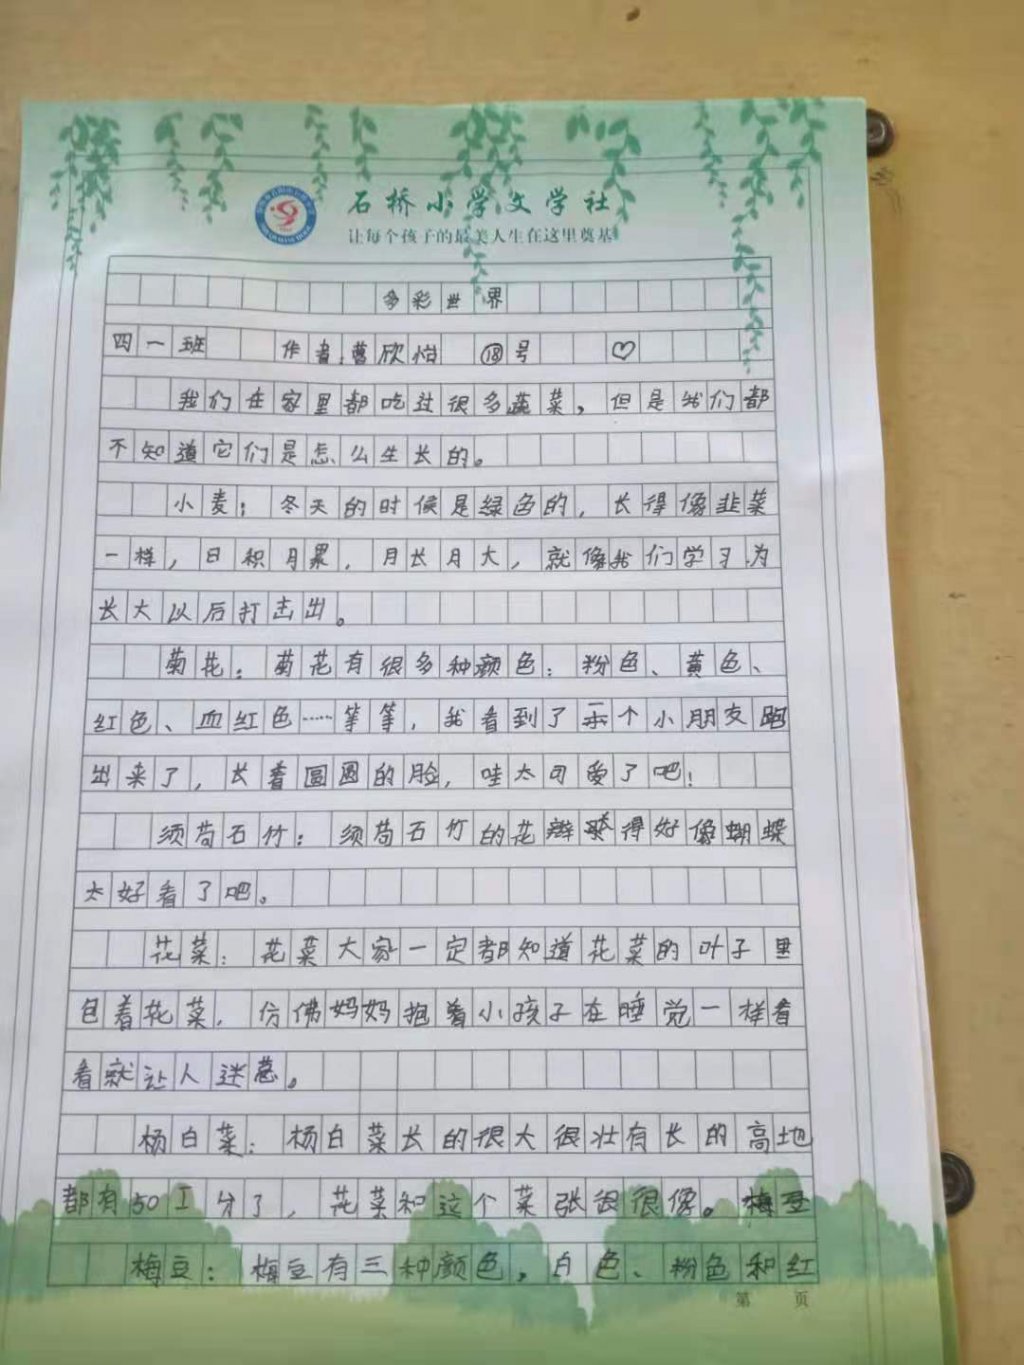 石桥小学文学社
让每个孩子的最美人生在这里奠基
多彩世界
四一班 作者:曹欣怡 ⑱号 ♡
我们在家里都吃过很多蔬菜，但是我们都
不知道它们是怎么生长的。
小麦：冬天的时候是绿色的，长得像韭菜
一样，日积月累，月长月大，就像我们学习为
长大以后打击出。
菊花：菊花有很多种颜色：粉色、黄色、
红色、血红色……等等，我看到了一个小朋友跑
出来了，长着圆圆的脸，哇太可爱了吧！
须苟石竹：须苟石竹的花辫得好像蝴蝶
太好看了吧。
花菜：花菜大家一定都知道花菜的叶子里
包着花菜，仿佛妈妈抱着小孩子在睡觉一样看
看就让人迷惹。
杨白菜：杨白菜长的很大很壮有长的高地
都有50工分了，花菜和这个菜张很很像。梅豆
梅豆：梅豆有三种颜色，白色、粉色和红
第 页